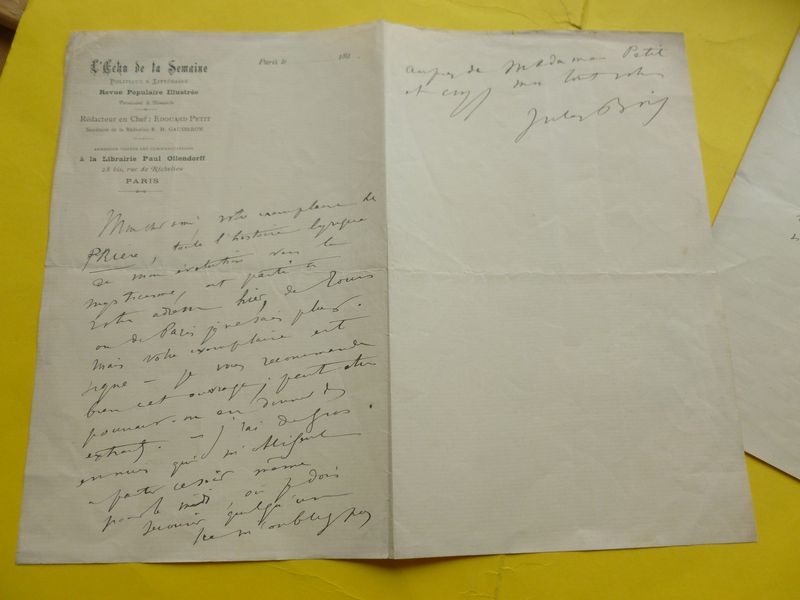 L'Echo de la Semaine
POLITIQUE & LITTÉRAIRE
Revue Populaire Illustrée
Paraissant le Dimanche
Rédacteur en Chef : EDOUARD PETIT
Secrétaire de la Rédaction E. H. GAUSSERON
ADRESSER TOUTES LES COMMUNICATIONS
à la Librairie Paul Ollendorff
28 bis, rue de Richelieu
PARIS
Paris le 189
Mon cher ami, votre exemplaire de
PRIERE, toute l'histoire lyrique
de mon évolution vers le
mysticisme, est parti à
votre adresse hier, de Tours
ou de Paris je ne sais plus.
Mais votre exemplaire est
signé — Je vous recommande
bien cet ouvrage; peut être
pourrait-on en donner des
extraits. — J'ai de gros
ennuis qui m'obligent
à partir ce soir même
pour le midi où je dois
secourir quelqu'un
Ne m'oubliez pas
auprès de Madame Petit
et croyez moi tout votre
Jules Bois